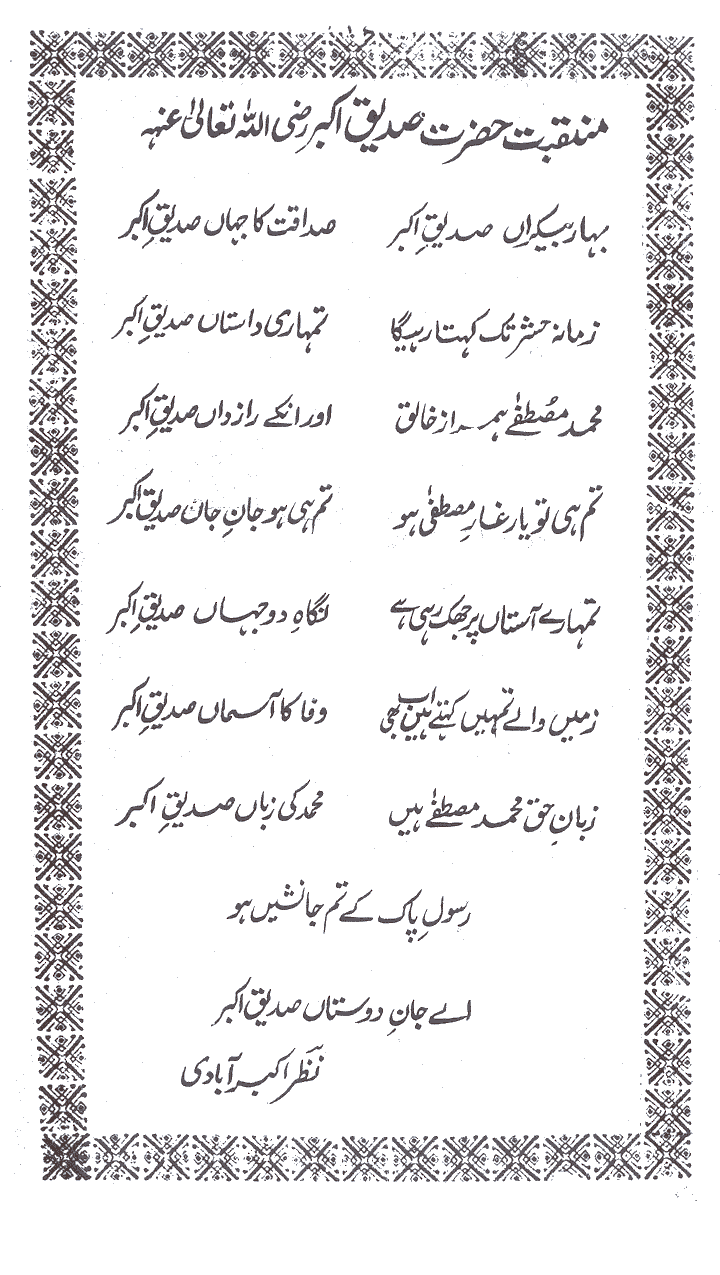 منقبت حضرت صدیق اکبر رضی اللہ تعالیٰ عنہ
بہار بیکراں صدیقِ اکبر صداقت کا جہاں صدیقِ اکبر
زمانہ حشر تک کہتا رہیگا تمہاری داستاں صدیقِ اکبر
محمد مصُطفٰے ہمراز خالق اور انکے رازداں صدیقِ اکبر
تم ہی تو یار غارِ مصطفٰی ہو تم ہی ہو جانِ جاں صدیق اکبر
تمہارے آستاں پر جھک رہی ہے نگاہِ دو جہاں صدیقِ اکبر
زمیں والے تمہیں کہتے ہیں اب بھی وفا کا آسماں صدیقِ اکبر
زبانِ حق محمد مصطفٰے ہیں محمد کی زباں صدیقِ اکبر
رسولِ پاک کے تم جانشیں ہو
اے جانِ دوستاں صدیق اکبر
نظر اکبر آبادی